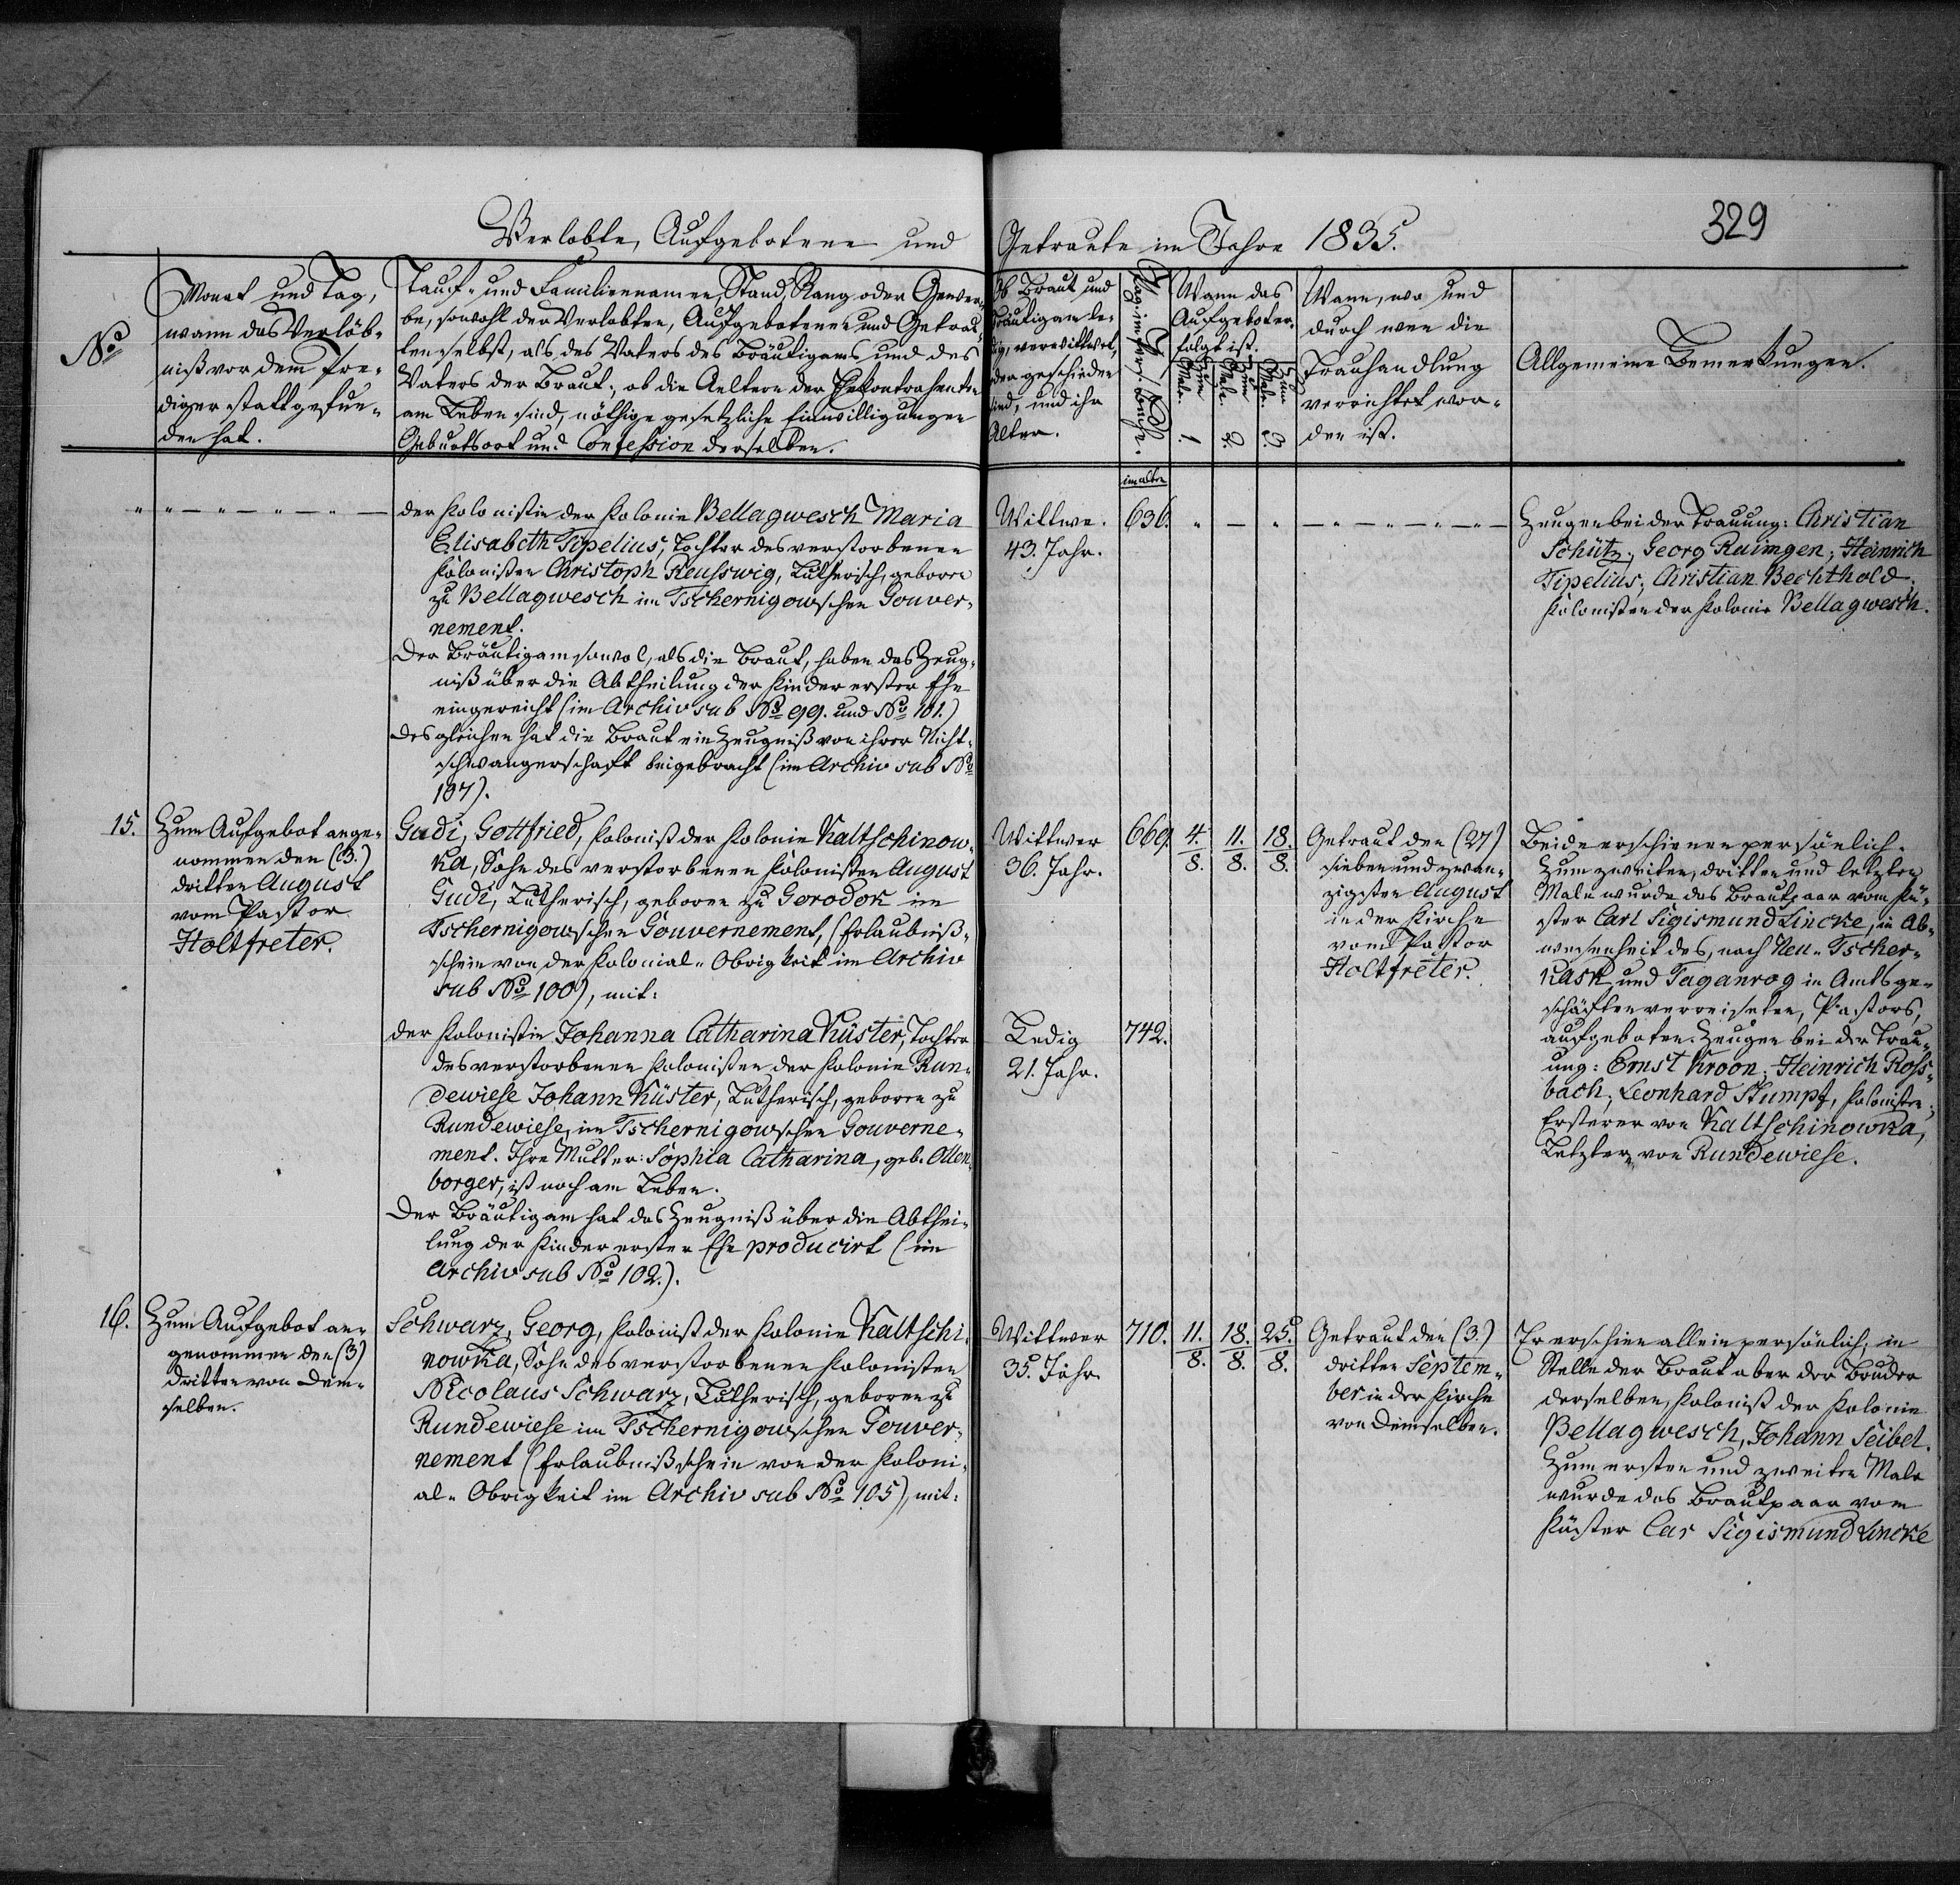 329
Verlobte, Aufgebotene und Getraute im Jahre 1835.
No
Monat und Tag,
wann das Verlöb-
niß vor dem Pre-
diger stattgefun-
den hat.
Tauf- und Familiennamen, Stand, Rang oder Gewer-
be, sowohl der Verlobten, Aufgebotenen und Getrau-
ten selbst, als des Vaters des Bräutigams und des
Vaters der Braut; ob die Aeltern der Ehekontrahenten
am Leben sind, nöthige gesetzliche Einwilligungen
Geburtsort und Confession derselben.
Ob Braut und
Bräutigam le-
dig, verwittwet,
oder geschieden
sind, und ihr
Alter.
Pag. im Pers. Buche.
Wann das
Aufgebot er-
folgt ist.
Zum 1. Male.
Zum 2. Male.
Zum 3. Male.
Wann, wo und
durch wen die
Trauhandlung
verrichtet wor-
den ist.
Allgemeine Bemerkungen.
der Kolonistin der Kolonie Bellagwesch Maria
Elisabeth Tipelius, Tochter des verstorbenen
Kolonisten Christoph Reusswig, Lutherisch, geboren
zu Bellagwesch im Tschernigowschen Gouver-
nement.
Der Bräutigam sowol, als die Braut, haben das Zeug-
niß über die Abtheilung der Kinder erster Ehe
eingereicht (im Archiv sub No 99. und No 101.)
Desgleichen hat die Braut ein Zeugniß von ihrer Nicht-
schwangerschaft beigebracht (im Archiv sub No
107).
Wittwe.
43. Jahr.
im alten
636.
Zeugen bei der Trauung: Christian
Schütz; Georg Ruimgen; Heinrich
Tipelius; Christian Bechthold.
Kolonisten der Kolonie Bellagwesch.
15.
Zum Aufgebot ange-
nommen den (3.)
dritten August
vom Pastor
Holtfreter.
Gudi, Gottfried, Kolonist der Kolonie Kaltschinow-
ka, Sohn des verstorbenen Kolonisten August
Gudi, Lutherisch, geboren zu Gorodok im
Tschernigowschen Gouvernement, (Erlaubniß-
schein von der Kolonial-Obrigkeit im Archiv
sub No 100), mit:
der Kolonistin Johanna Catharina Küster, Tochter
des verstorbenen Kolonisten der Kolonie Run-
dewiese Johann Küster, Lutherisch, geboren zu
Rundewiese, im Tschernigowschen Gouverne-
ment. Ihre Mutter: Sophia Catharina, geb. Ollen-
borger, ist noch am Leben.
Der Bräutigam hat das Zeugniß über die Abthei-
lung der Kinder erster Ehe producirt (im
Archiv sub No 102.).
Wittwer
36. Jahr.
669.
4./8. 11./8. 18./8.
Ledig
21. Jahr.
742.
Getraut den (27)
sieben und zwan-
zigsten August
in der Kirche
vom Pastor
Holtfreter.
Beide erschienen persönlich.
Zum zweiten, dritten und letzten
Male wurde das Brautpaar vom Kü-
ster Carl Sigismund Lincke, in Ab-
wesenheit des, nach Neu-Tscher-
kask und Taganrog in Amtsge-
schäften verreiseten, Pastors,
aufgeboten. Zeugen bei der Trau-
ung: Ernst Kroon; Heinrich Ross-
bach; Leonhard Stumpf, Kolonisten;
Ersterer von Kaltschinowka,
Letztere von Rundewiese.
16.
Zum Aufgebot an-
genommen den (3)
dritten von Dem-
selben.
Schwarz, Georg, Kolonist der Kolonie Kaltschi-
nowka, Sohn des verstorbenen Kolonisten
Nicolaus Schwarz, Lutherisch, geboren zu
Rundewiese im Tschernigowschen Gouver-
nement (Erlaubnißschein von der Koloni-
al-Obrigkeit im Archiv sub No 105), mit:
Wittwer
35. Jahr.
710.
11./8. 18./8. 25./8.
Getraut den (3.)
dritten Septem-
ber in der Kirche
von Demselben.
Er erschien allein persönlich, in
Stelle der Braut aber der Bruder
derselben, Kolonist der Kolonie
Bellagwesch, Johann Seibel.
Zum ersten und zweiten Male
wurde das Brautpaar vom
Küster Car Sigismund Lincke